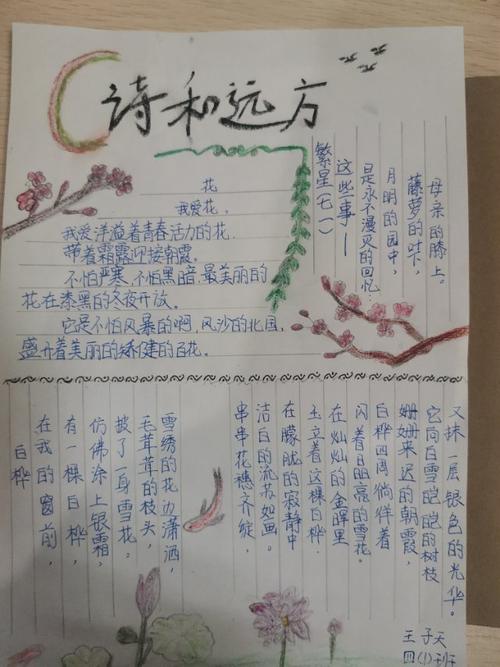 诗和远方
花
我爱花，
我爱洋溢着青春活力的花.
带着霜露迎接朝霞.
不怕严寒.不怕黑暗.最美丽的
花在漆黑的冬夜开放.
它是不怕风暴的啊,风沙的北国,
盛开着美丽的矫健的百花.
繁星(七一)
这些事——
是永不漫灭的回忆:
月明的园中,
藤萝的叶下,
母亲的膝上。
白桦
在我的窗前,
有一棵白桦,
仿佛涂上银霜,
披了一身雪花。
毛茸茸的枝头,
雪绣的花边潇洒,
串串花穗齐绽,
洁白的流苏如画。
在朦胧的寂静中
玉立着这棵白桦.
在灿灿的金晖里
闪着晶亮的雪花。
白桦四周徜徉着
姗姗来迟的朝霞,
它向白雪皑皑的树枝
又抹一层银色的光华。
王子天
四(1)班